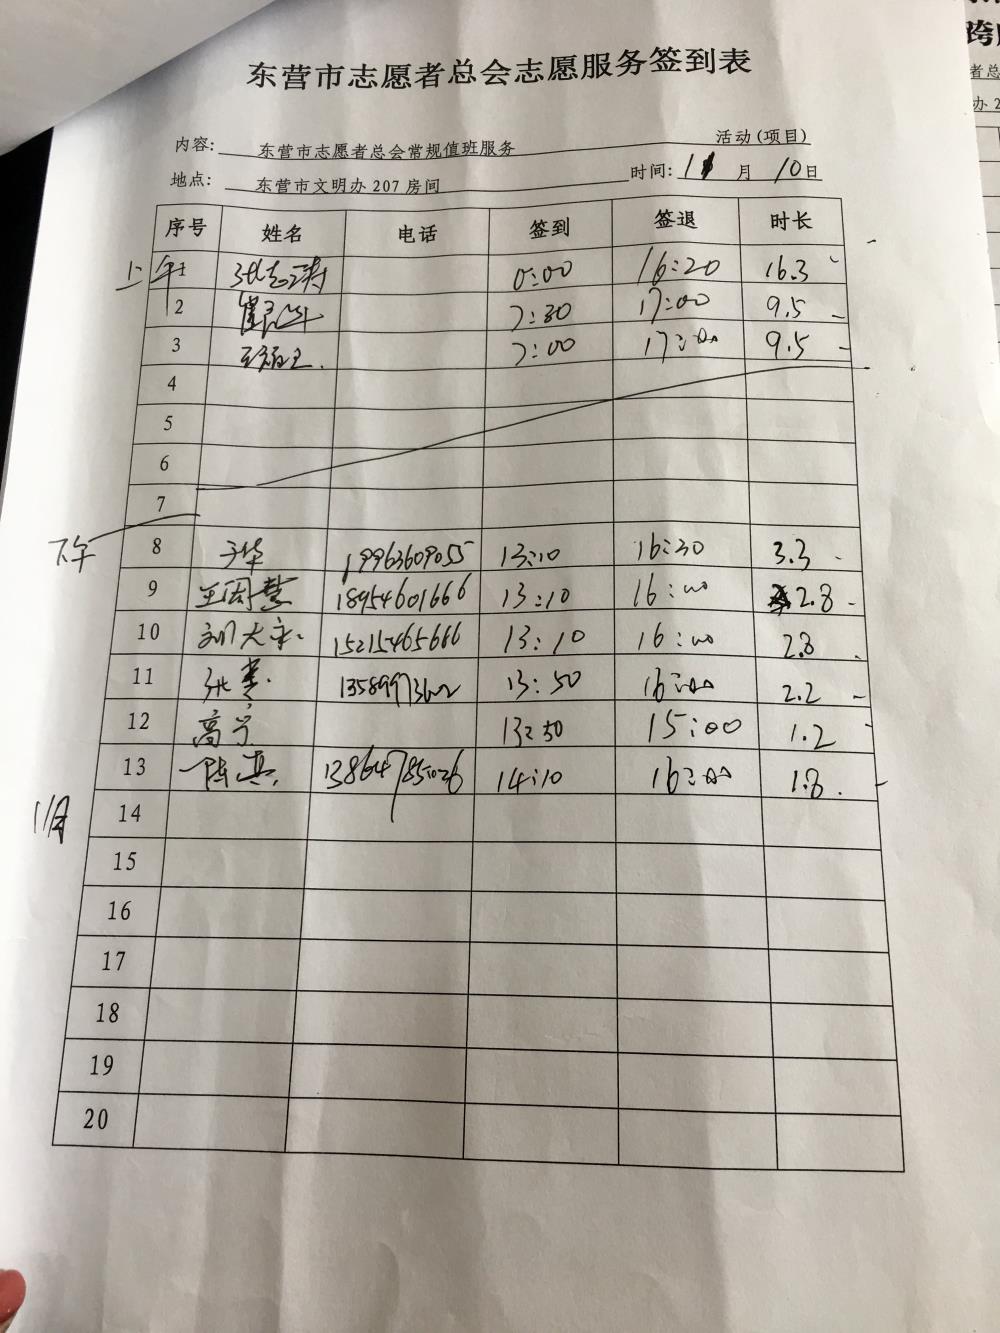 东营市志愿者总会志愿服务签到表
内容: 东营市志愿者总会常规值班服务 活动(项目)
地点: 东营市文明办 207 房间 时间: 1 月 10日
序号 姓名 电话 签到 签退 时长
上午
1 0:00 16:20 16.3
2 7:30 17:00 9.5
3 7:00 17:00 9.5
4
5
6
7
下午
8 于华 19963609055 13:10 16:30 3.3
9 王国慧 18954601666 13:10 16:00 2.8
10 15215465666 13:10 16:00 2.8
11 13:50 16:00 2.2
12 高宁 13:50 15:00 1.2
13 陈真 14:10 16:00 1.8
11月
14
15
16
17
18
19
20